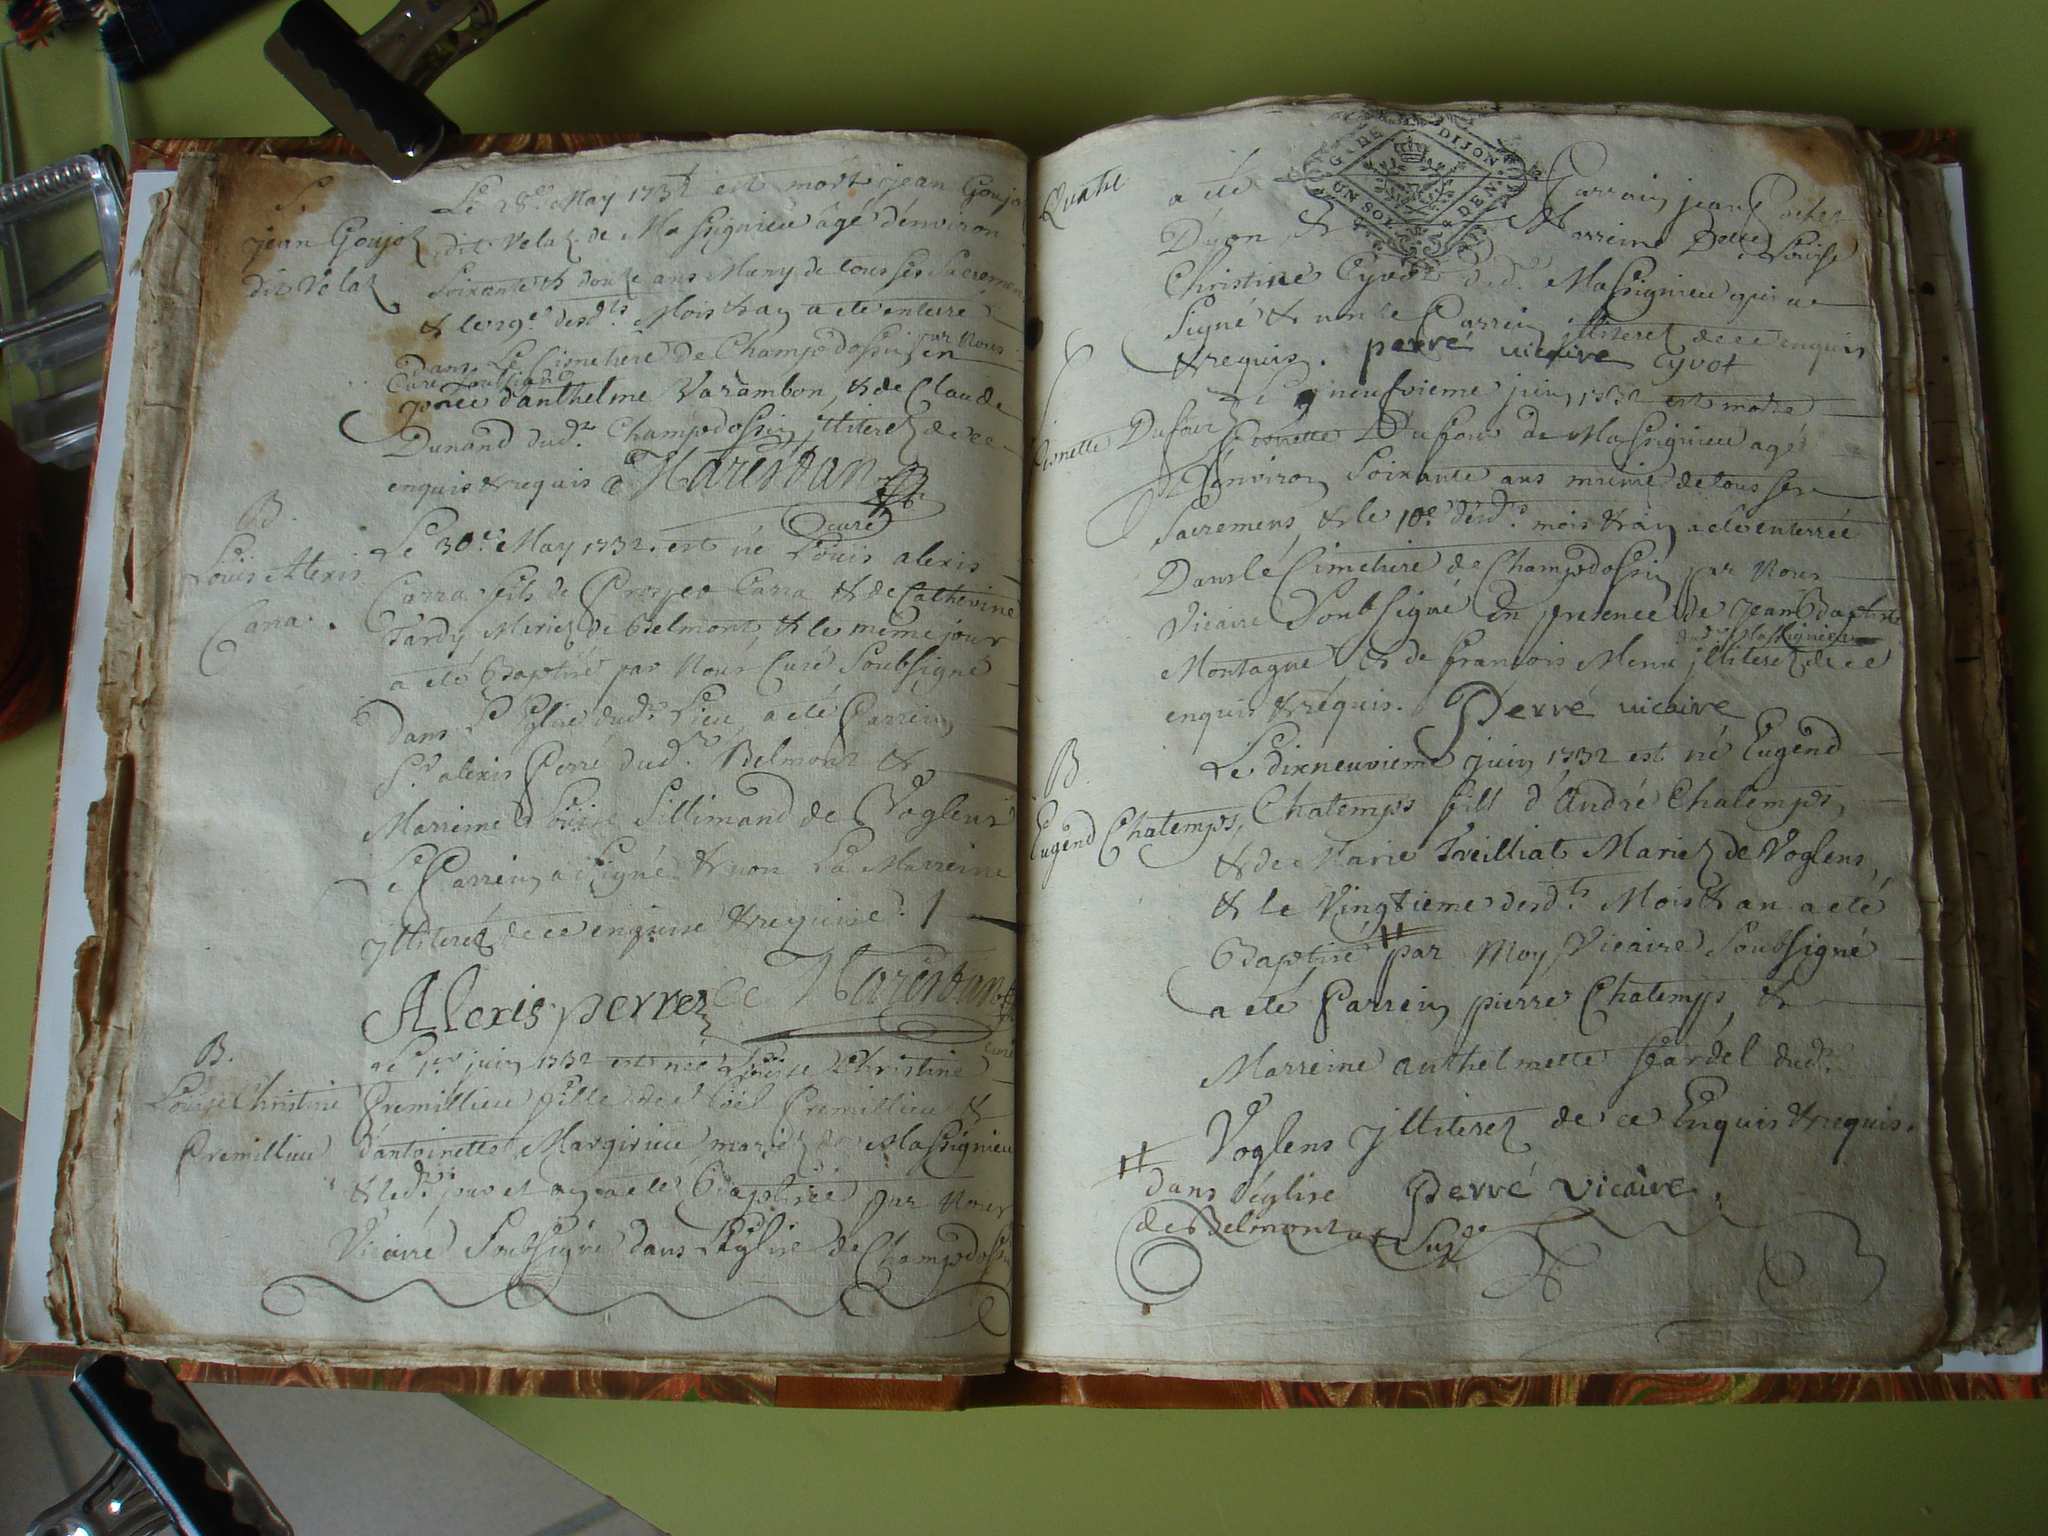 S.
Jean Goujoz
dit Velaz
Le 28e May 1732 est mort jean Goujoz
dit Velaz de Massignieu âgé d'environ
Soixante & douze ans Muny de tous ses Sacremens
& le 29e desdts. Mois & an a été enterré
dans Le Cimetiere de Champdossin par Nous
Curé soubsigné en
d'anthelme Varambon, & de Claude
Dunand dudt. Champdossin illiterez de ce
enquis & requis
curé
B.
Louis Alexis
Carra.
Le 30e May 1732. est né Louis alexis
Carra fils de Carra & de Catherine
Tardy Mariez de Belmont, & le même jour
a été Baptisé par Nous Curé Soubsigné
Dans L'Eglise dudt. Lieu, a été Parrein
Sr. alexis Perré dudt. Belmont &
Marreine Louise Sillimand de Voglens
Le Parrein a Signé & non La Marreine
illiterez de ce enquise & requise.
Alexis perrez
curé
B.
Louise Christine
Premillieu
Le 1er juin 1732 est née Louise Christine
Premillieu fille de Premillieu &
d'antoinette Margirieu mariez de Massignieu
& ledt. jour et an a été Baptisée par Nous
Vicaire Soubsigné dans L'Eglise de Champdossin
Quatre
G. DE DIJON
UN SOL 4 DEN.
a été Parrain jean
& Marreine Delle Louise
Christine Cyvot dudt. Massignieu qui a
Signé & non le Parrein illiterez de ce enquis
& requis. perré vicaire Cyvot
S
Dufour
Le neufvieme juin 1732 est morte
Dufour de Massignieu agée
d'Environ Soixante ans munie de tous ses
Sacremens, & le 10e desdts. mois & an a été enterrée
Dans le Cimetiere de Champdossin par Nous
Vicaire Soubsigné En presence de Jean Baptiste
Montagne & de francois Menu dudt. Massignieu illiterez de ce
enquis & réquis. Perré vicaire
B.
Eugend Chatemps,
Le dixneuvieme juin 1732 est né Eugend
Chatemps fill d'André Chatemps,
& de Marie Treilliat Mariez de Voglens,
& le Vingtieme desdts. Mois & an a été
Baptisé # par Moy Vicaire Soubsigné
a été Parrein pierre Chatemps, &
Marreine anthelmette Gardel dudt.
Voglens illiterez de ce Enquis & requis.
# dans l'église Perré Vicaire.
de Belmont